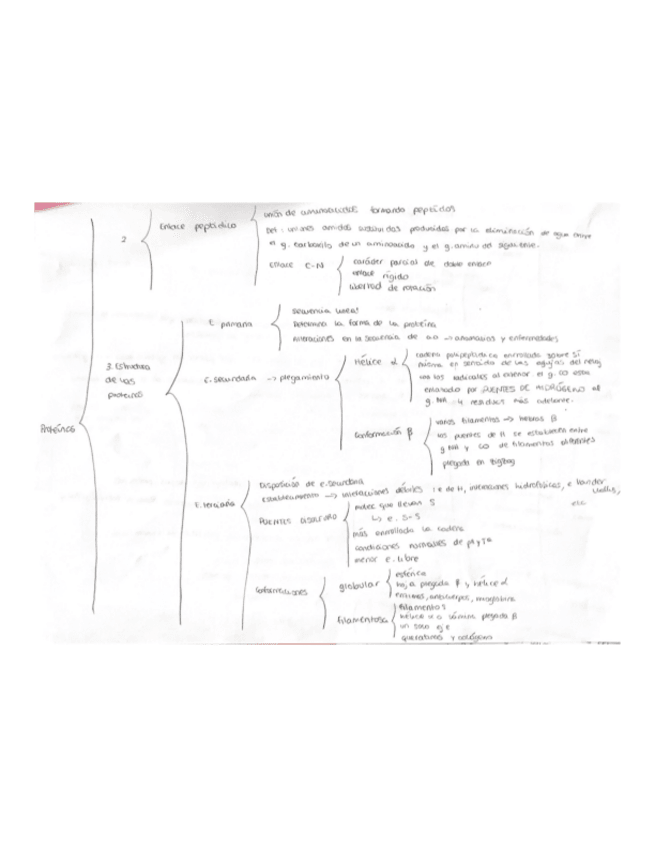 Proteínas
2
Enlace peptídico
unión de aminoácidos formando peptidos
Def: uniones amidas sustituidas producidas por la eliminación de agua entre
el g. carboxilo de un aminoacido y el g. amino del siguiente.
Enlace C-N
carácter parcial de doble enlace
enlace rígido
libertad de rotación
3. Estructura
de las
proteínas
E. primaria
secuencia lineal
Determina la forma de la proteína
Alteraciones en la secuencia de aa → anomalías y enfermedades
E. secundaria → plegamiento
Hélice α
cadena polipeptídica enrollada sobre sí
misma en sentido de las agujas del reloj
con los radicales al exterior. el g. CO está
enlazado por PUENTES DE HIDRÓGENO al
g. NH 4 residuos más adelante.
Conformación β
varios filamentos → hebras β
los puentes de H se establecen entre
g NH y CO de filamentos diferentes
plegada en zigzag
E. terciaria
Disposición de e. secundaria
Establecimiento → interacciones débiles: e de H, interacciones hidrofóbicas, e Van der
Walls,
etc
PUENTES DISULFURO
molec que llevan S
↳ e. S=S
más enrollada la cadena
condiciones normales de pH y Tª
menor e. libre
Conformaciones
globular
esférica
hoja plegada β y hélice α
enzimas, anticuerpos, mioglobina
filamentosa
filamentos
hélice α o lámina plegada β
un solo eje
queratinas y colágeno